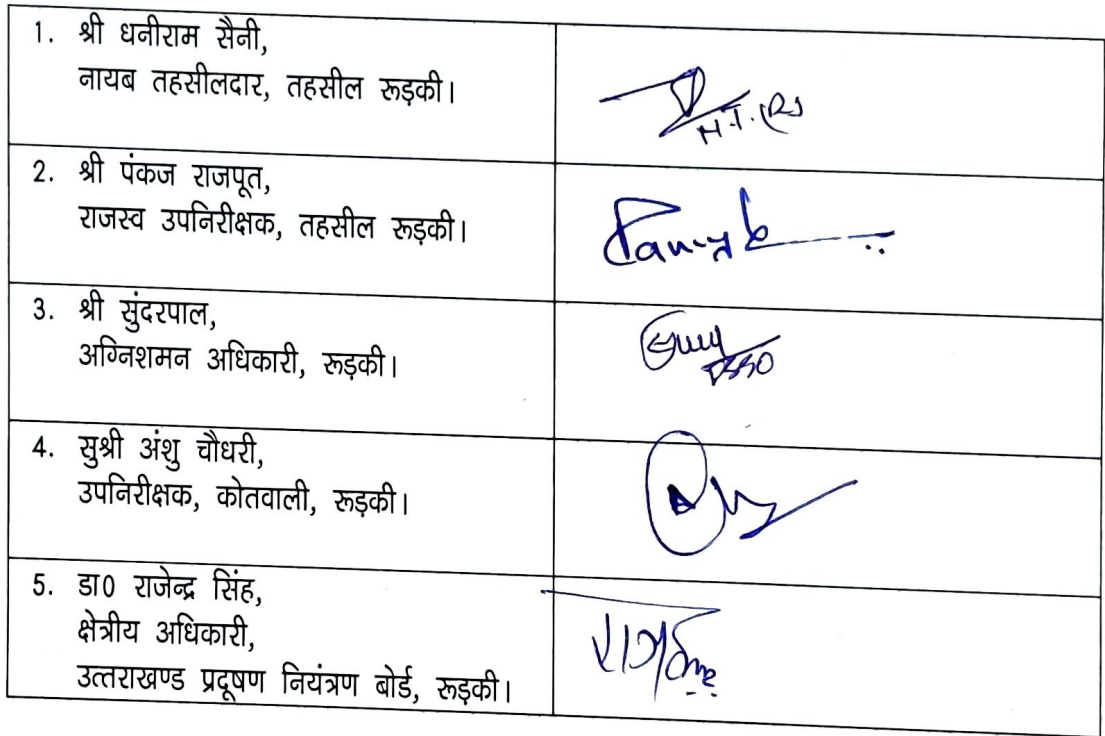 1. श्री धनीराम सैनी,
नायब तहसीलदार, तहसील रूड़की।
N.T. (R)
2. श्री पंकज राजपूत,
राजस्व उपनिरीक्षक, तहसील रूड़की।
3. श्री सुंदरपाल,
अग्निशमन अधिकारी, रूड़की।
4. सुश्री अंशु चौधरी,
उपनिरीक्षक, कोतवाली, रूड़की।
5. डा0 राजेन्द्र सिंह,
क्षेत्रीय अधिकारी,
उत्तराखण्ड प्रदूषण नियंत्रण बोर्ड, रूड़की।